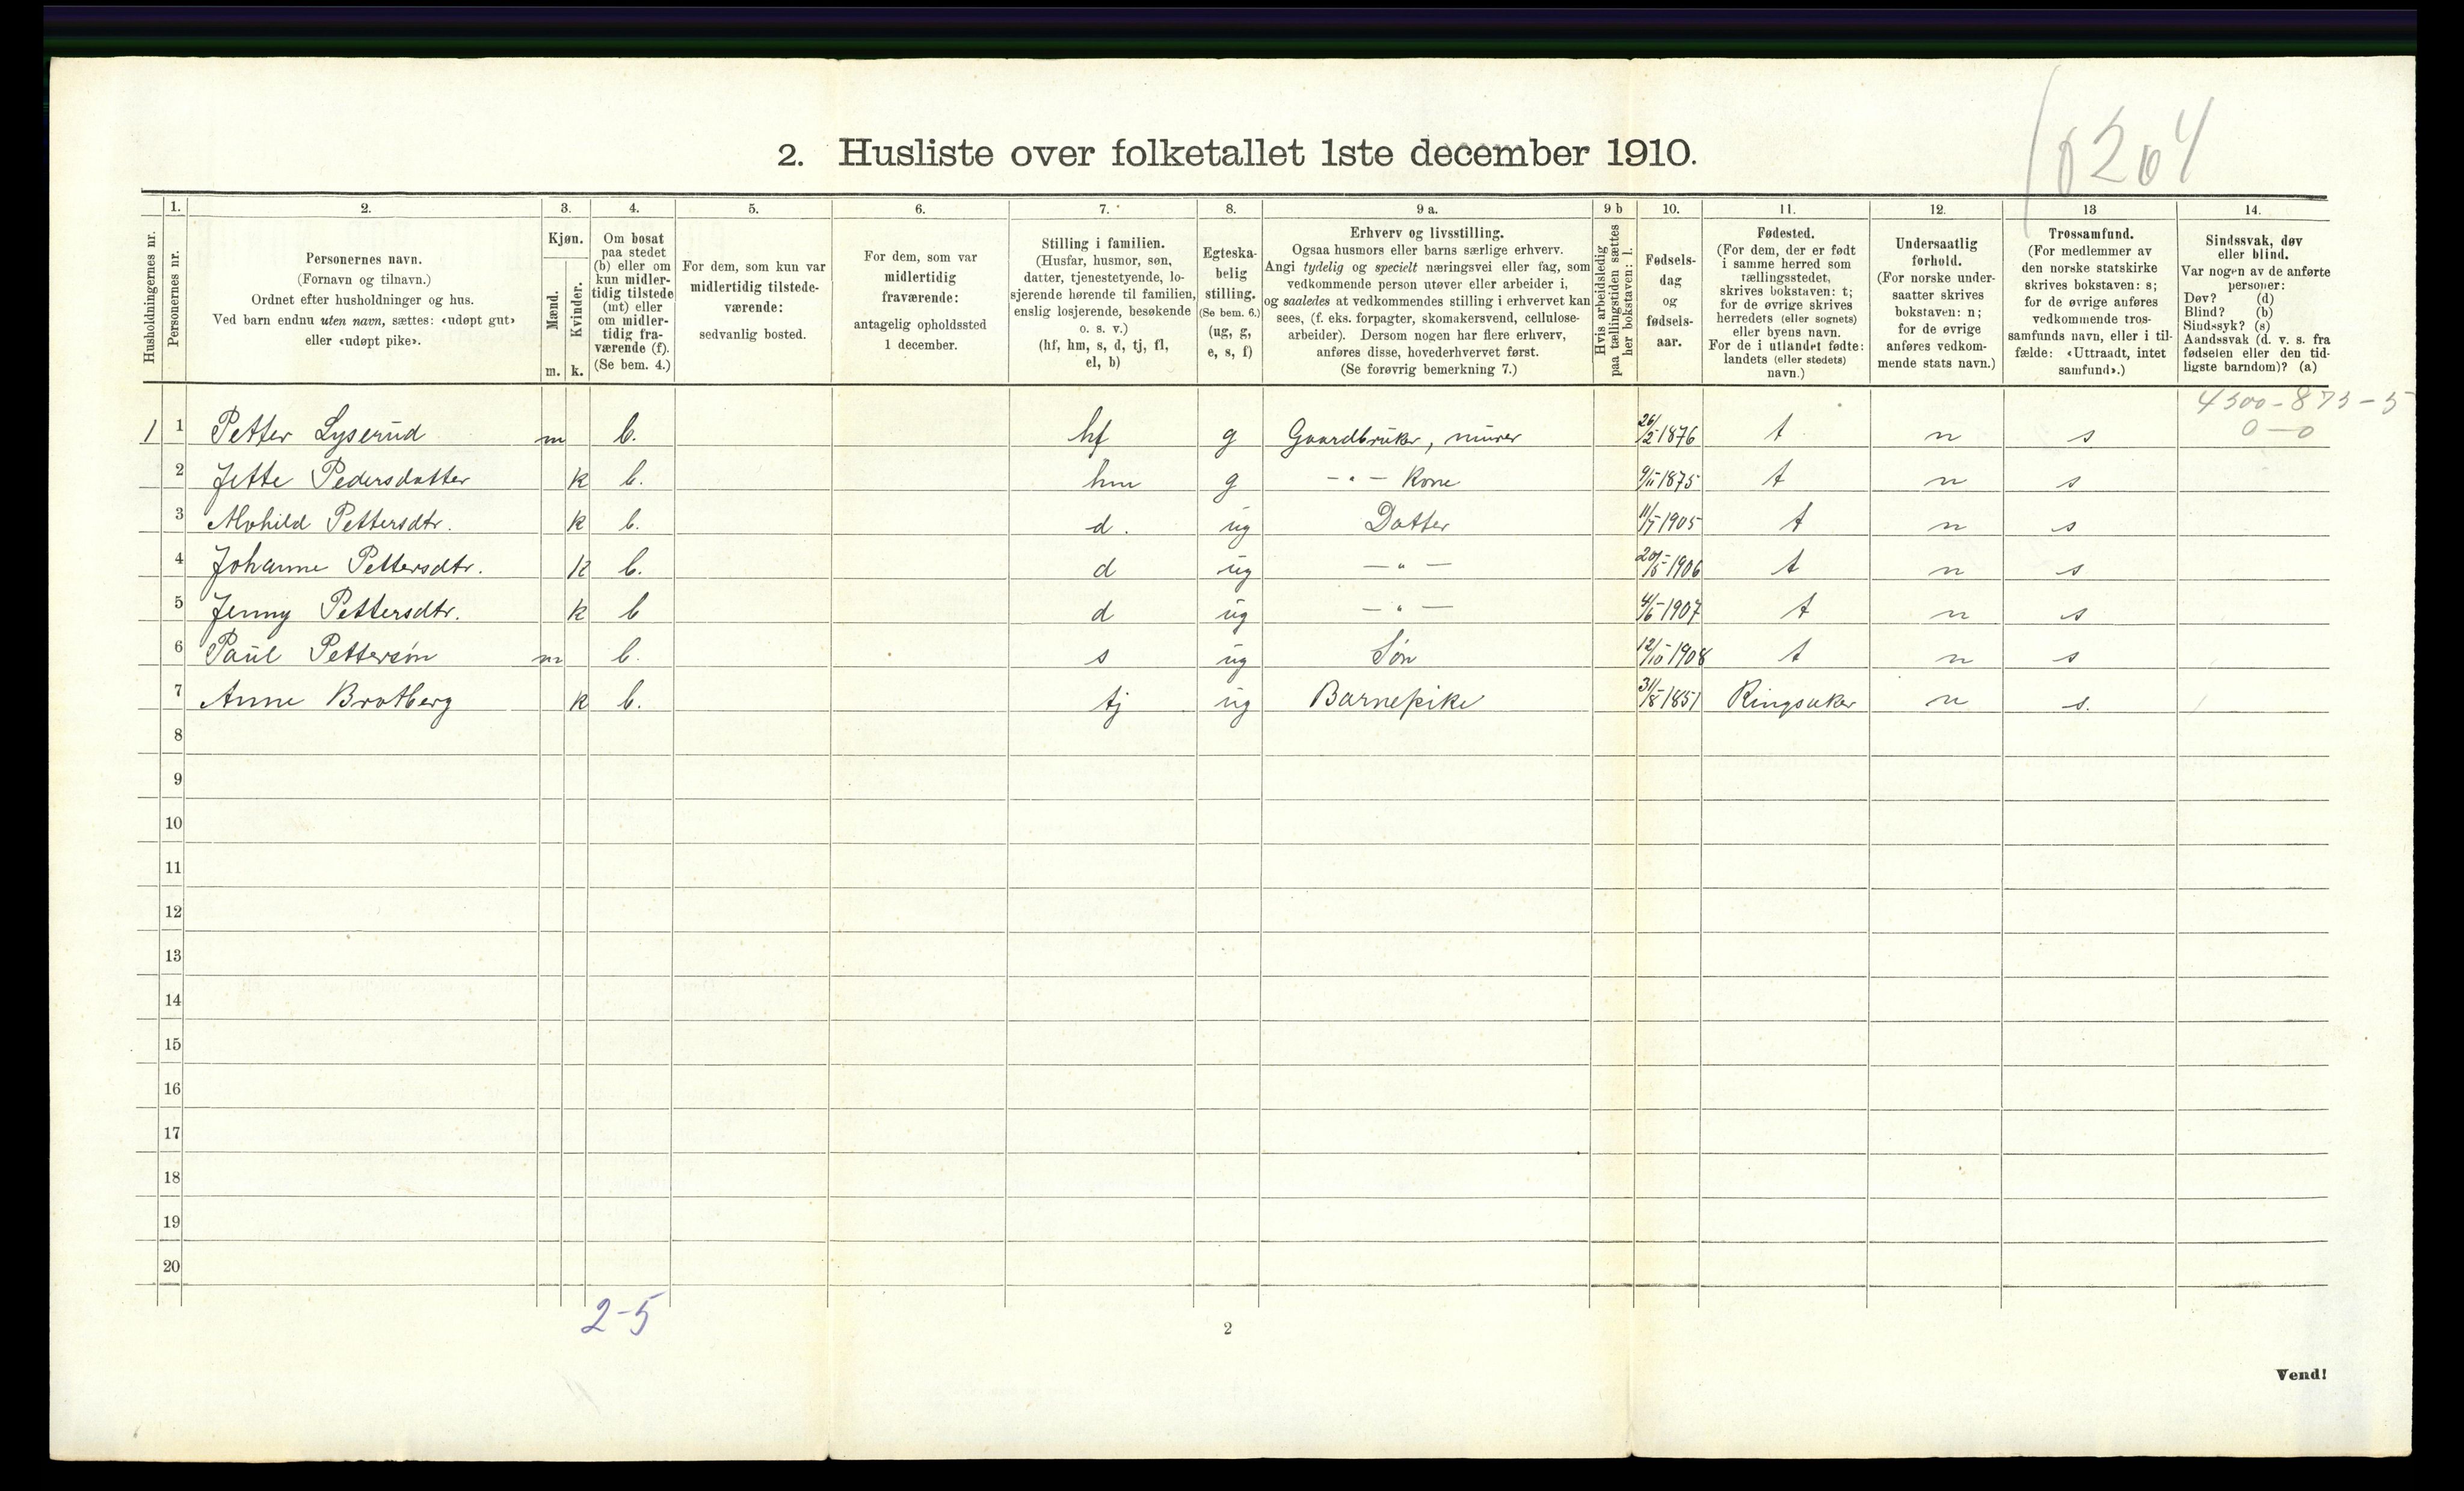 0204
2. Husliste over folketallet 1ste december 1910.
Husholdningernes nr.
1. Personernes nr.
2. Personernes navn.
(Fornavn og tilnavn.)
Ordnet efter husholdninger og hus.
Ved barn endnu uten navn, sættes: «udøpt gut»
eller «udøpt pike».
3. Kjøn.
Mænd. m.
Kvinder. k.
4. Om bosat
paa stedet
(b) eller om
kun midler-
tidig tilstede
(mt) eller
om midler-
tidig fra-
værende (f).
(Se bem. 4.)
5. For dem, som kun var
midlertidig tilstede-
værende:
sedvanlig bosted.
6. For dem, som var
midlertidig
fraværende:
antagelig opholdssted
1 december.
7. Stilling i familien.
(Husfar, husmor, søn,
datter, tjenestetyende, lo-
sjerende hørende til familien,
enslig losjerende, besøkende
o. s. v.)
(hf, hm, s, d, tj, fl,
el, b)
8. Egteska-
belig
stilling.
(Se bem. 6.)
(ug, g,
e, s, f)
9 a. Erhverv og livsstilling.
Ogsaa husmors eller barns særlige erhverv.
Angi tydelig og specielt næringsvei eller fag, som
vedkommende person utøver eller arbeider i,
og saaledes at vedkommendes stilling i erhvervet kan
sees, (f. eks. forpagter, skomakersvend, cellulose-
arbeider). Dersom nogen har flere erhverv,
anføres disse, hovederhvervet først.
(Se forøvrig bemerkning 7.)
9 b Hvis arbeidsledig
paa tællingstiden sættes
her bokstaven: l.
10. Fødsels-
dag
og
fødsels-
aar.
11. Fødested.
(For dem, der er født
i samme herred som
tællingsstedet,
skrives bokstaven: t;
for de øvrige skrives
herredets (eller sognets)
eller byens navn.
For de i utlandet fødte:
landets (eller stedets)
navn.)
12. Undersaatlig
forhold.
(For norske under-
saatter skrives
bokstaven: n;
for de øvrige
anføres vedkom-
mende stats navn.)
13 Trossamfund.
(For medlemmer av
den norske statskirke
skrives bokstaven: s;
for de øvrige anføres
vedkommende tros-
samfunds navn, eller i til-
fælde: «Uttraadt, intet
samfund».)
14. Sindssvak, døv
eller blind.
Var nogen av de anførte
personer:
Døv? (d)
Blind? (b)
Sindssyk? (s)
Aandssvak (d. v. s. fra
fødselen eller den tid-
ligste barndom)? (a)
4500-873-5
0-0
1 1 Petter Lyserud m b. hf g Gaardbruker, murer 26/2 1876 t n s
2 Jette Pedersdatter k b. hm g -"- Kone 9/11 1875 t n s
3 Alvhild Pettersdtr. k b. d. ug Datter 1905 t n s
4 Johanne Pettersdtr. k b. d ug -"- 1906 t n s
5 Jenny Pettersdtr. k b d ug -"- 4/6 1907 t n s
6 Paul Pettersøn m b. s ug Søn 12/10 1908 t n s
7 Anne Bratberg k b. tj ug Barnepike 31/8 1851 Ringsaker n s.
8
9
10
11
12
13
14
15
16
17
18
19
20
2-5
2
Vend!